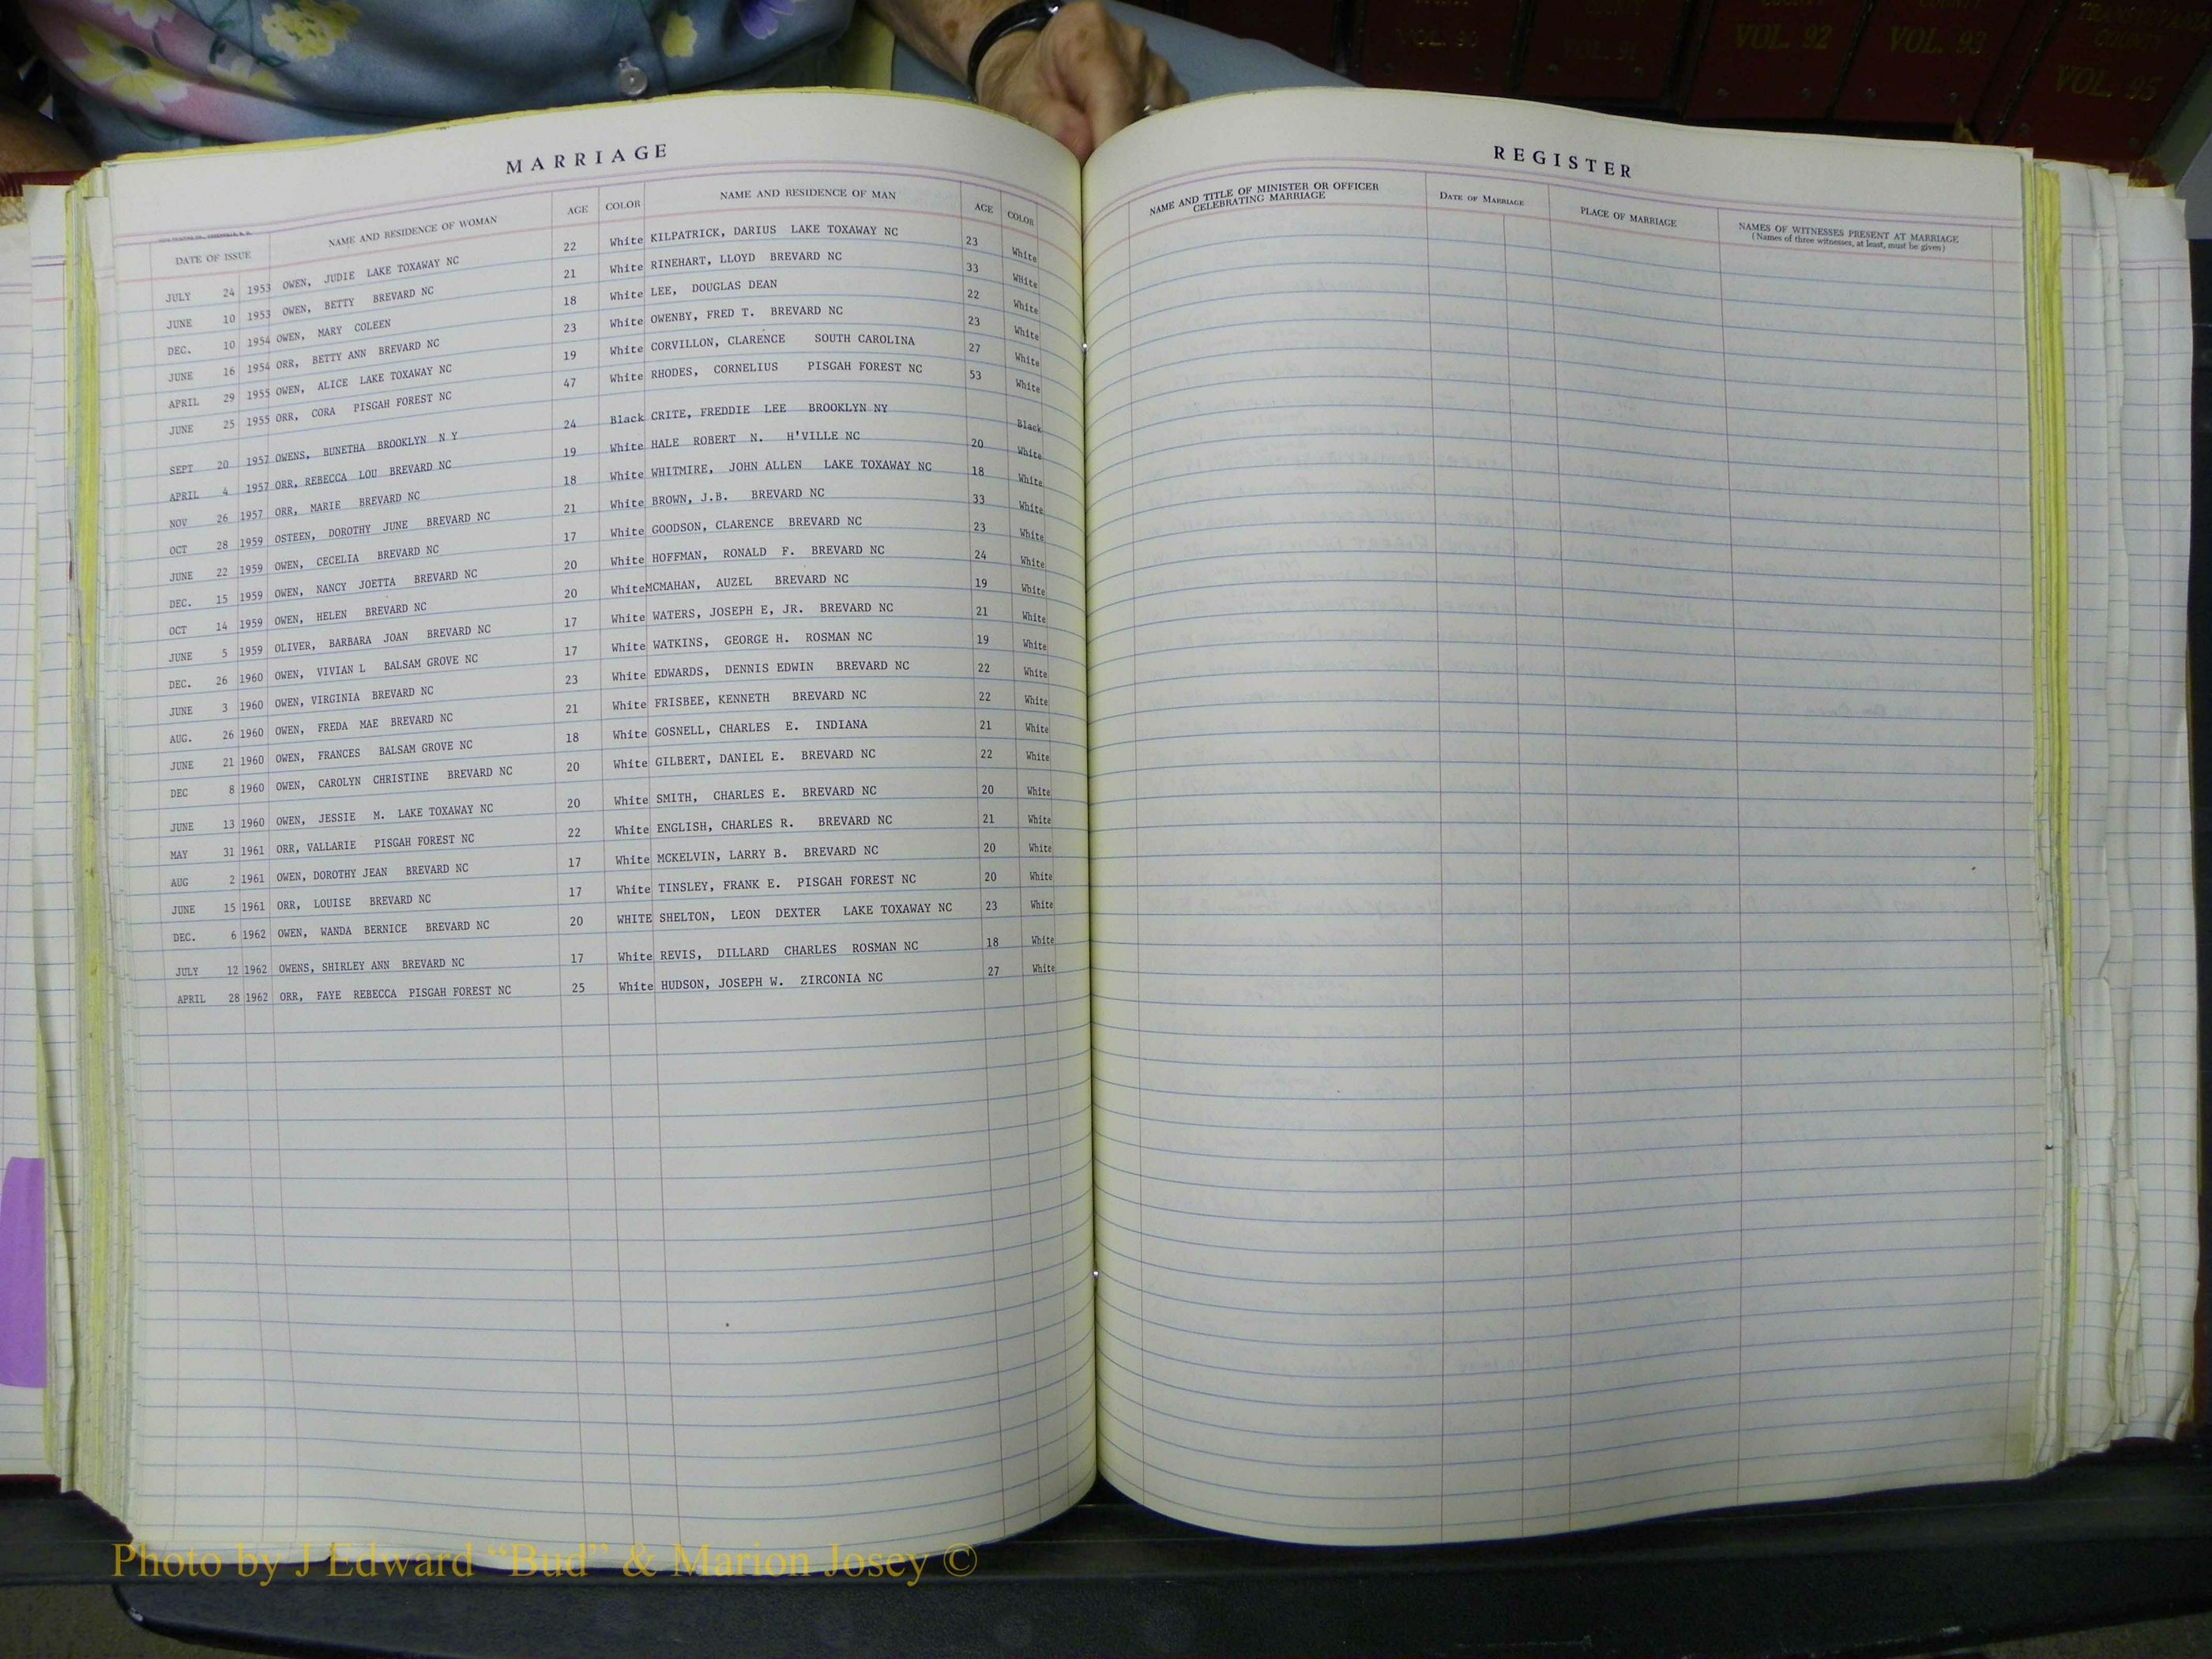 COUNTY
VOL. 90
COUNTY
VOL. 91
COUNTY
VOL. 92
COUNTY
VOL. 93
TRANSYLVANIA
COUNTY
VOL. 95
MARRIAGE
DATE OF ISSUE NAME AND RESIDENCE OF WOMAN AGE COLOR NAME AND RESIDENCE OF MAN AGE COLOR
JULY 24 1953 OWEN, JUDIE LAKE TOXAWAY NC 22 White KILPATRICK, DARIUS LAKE TOXAWAY NC 23 White
JUNE 10 1953 OWEN, BETTY BREVARD NC 21 White RINEHART, LLOYD BREVARD NC 33 WHite
DEC. 10 1954 OWEN, MARY COLEEN 18 White LEE, DOUGLAS DEAN 22 White
JUNE 16 1954 ORR, BETTY ANN BREVARD NC 23 White OWENBY, FRED T. BREVARD NC 23 White
APRIL 29 1955 OWEN, ALICE LAKE TOXAWAY NC 19 White CORVILLON, CLARENCE SOUTH CAROLINA 27 White
JUNE 25 1955 ORR, CORA PISGAH FOREST NC 47 White RHODES, CORNELIUS PISGAH FOREST NC 53 White
SEPT 20 1957 OWENS, BUNETHA BROOKLYN N Y 24 Black CRITE, FREDDIE LEE BROOKLYN NY Black
APRIL 4 1957 ORR, REBECCA LOU BREVARD NC 19 White HALE ROBERT N. H'VILLE NC 20 White
NOV 26 1957 ORR, MARIE BREVARD NC 18 White WHITMIRE, JOHN ALLEN LAKE TOXAWAY NC 18 White
OCT 28 1959 OSTEEN, DOROTHY JUNE BREVARD NC 21 White BROWN, J.B. BREVARD NC 33 White
JUNE 22 1959 OWEN, CECELIA BREVARD NC 17 White GOODSON, CLARENCE BREVARD NC 23 White
DEC. 15 1959 OWEN, NANCY JOETTA BREVARD NC 20 White HOFFMAN, RONALD F. BREVARD NC 24 White
OCT 14 1959 OWEN, HELEN BREVARD NC 20 WhiteMCMAHAN, AUZEL BREVARD NC 19 White
JUNE 5 1959 OLIVER, BARBARA JOAN BREVARD NC 17 White WATERS, JOSEPH E, JR. BREVARD NC 21 White
DEC. 26 1960 OWEN, VIVIAN L BALSAM GROVE NC 17 White WATKINS, GEORGE H. ROSMAN NC 19 White
JUNE 3 1960 OWEN, VIRGINIA BREVARD NC 23 White EDWARDS, DENNIS EDWIN BREVARD NC 22 White
AUG. 26 1960 OWEN, FREDA MAE BREVARD NC 21 White FRISBEE, KENNETH BREVARD NC 22 White
JUNE 21 1960 OWEN, FRANCES BALSAM GROVE NC 18 White GOSNELL, CHARLES E. INDIANA 21 White
DEC 8 1960 OWEN, CAROLYN CHRISTINE BREVARD NC 20 White GILBERT, DANIEL E. BREVARD NC 22 White
JUNE 13 1960 OWEN, JESSIE M. LAKE TOXAWAY NC 20 White SMITH, CHARLES E. BREVARD NC 20 White
MAY 31 1961 ORR, VALLARIE PISGAH FOREST NC 22 White ENGLISH, CHARLES R. BREVARD NC 21 White
AUG 2 1961 OWEN, DOROTHY JEAN BREVARD NC 17 White MCKELVIN, LARRY B. BREVARD NC 20 White
JUNE 15 1961 ORR, LOUISE BREVARD NC 17 White TINSLEY, FRANK E. PISGAH FOREST NC 20 White
DEC. 6 1962 OWEN, WANDA BERNICE BREVARD NC 20 WHITE SHELTON, LEON DEXTER LAKE TOXAWAY NC 23 White
JULY 12 1962 OWENS, SHIRLEY ANN BREVARD NC 17 White REVIS, DILLARD CHARLES ROSMAN NC 18 White
APRIL 28 1962 ORR, FAYE REBECCA PISGAH FOREST NC 25 White HUDSON, JOSEPH W. ZIRCONIA NC 27 White
REGISTER
NAME AND TITLE OF MINISTER OR OFFICER CELEBRATING MARRIAGE DATE OF MARRIAGE PLACE OF MARRIAGE NAMES OF WITNESSES PRESENT AT MARRIAGE
(Names of three witnesses, at least, must be given)
Photo by J Edward “Bud” & Marion Josey ©